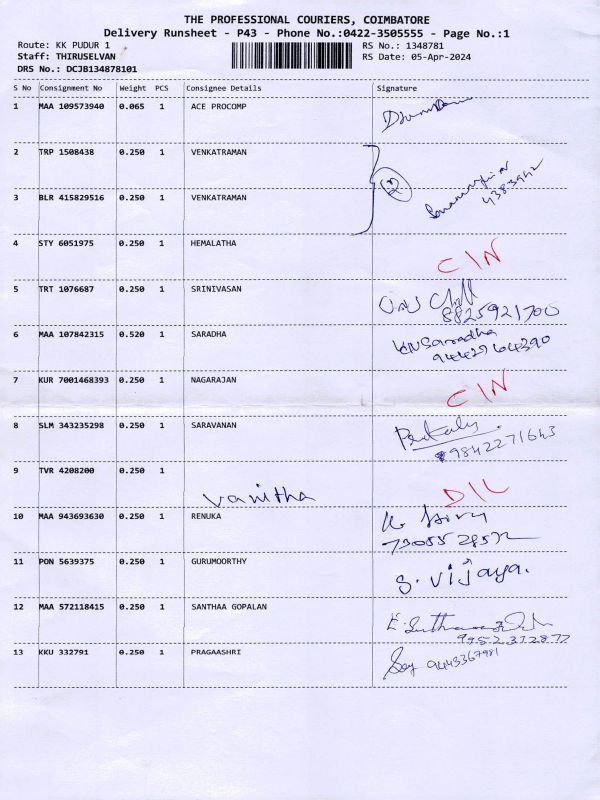 THE PROFESSIONAL COURIERS, COIMBATORE
Delivery Runsheet - P43 - Phone No.:0422-3505555 - Page No.:1
Route: KK PUDUR 1 RS No.: 1348781
Staff: THIRUSELVAN RS Date: 05-Apr-2024
DRS No.: DCJB134878101
S No Consignment No Weight PCS Consignee Details Signature
1 MAA 109573940 0.065 1 ACE PROCOMP
2 TRP 1508438 0.250 1 VENKATRAMAN
2
3 BLR 415829516 0.250 1 VENKATRAMAN
4 STY 6051975 0.250 1 HEMALATHA
C/N
5 TRT 1076687 0.250 1 SRINIVASAN
8825921700
6 MAA 107842315 0.520 1 SARADHA
KNSaradha
7 KUR 7001468393 0.250 1 NAGARAJAN
C/N
8 SLM 343235298 0.250 1 SARAVANAN
9842271643
9 TVR 4208200 0.250 1
Vanitha D/L
10 MAA 943693630 0.250 1 RENUKA
11 PON 5639375 0.250 1 GURUMOORTHY
S. Vijaya.
12 MAA 572118415 0.250 1 SANTHAA GOPALAN
9952312872
13 KKU 332791 0.250 1 PRAGAASHRI
9443367981